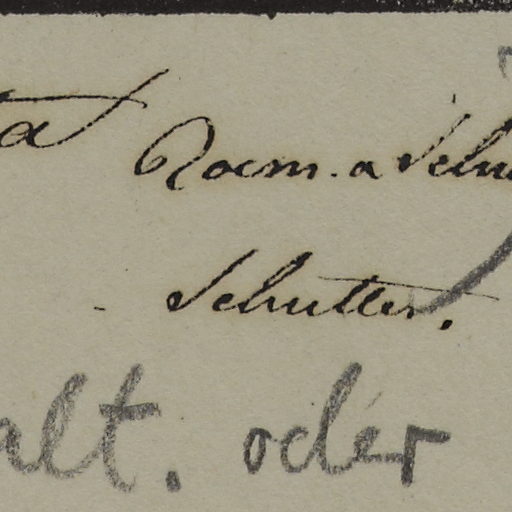 Roem. a
Schutter.
alt. oder